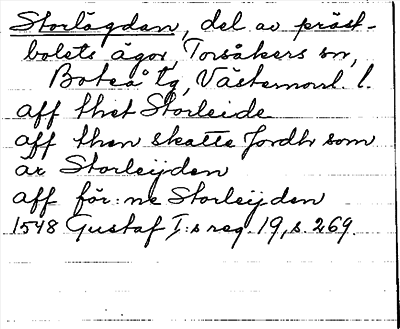 Storlägden, del av präst-
bolets ägor, Torsåkers sn,
Boteå tg, Västernorrl. l.
aff thet Storleide
aff then skatte Jordh som
är Storleijden
aff för:ne Storleijden
1548 Gustaf I:s reg. 19, s. 269.